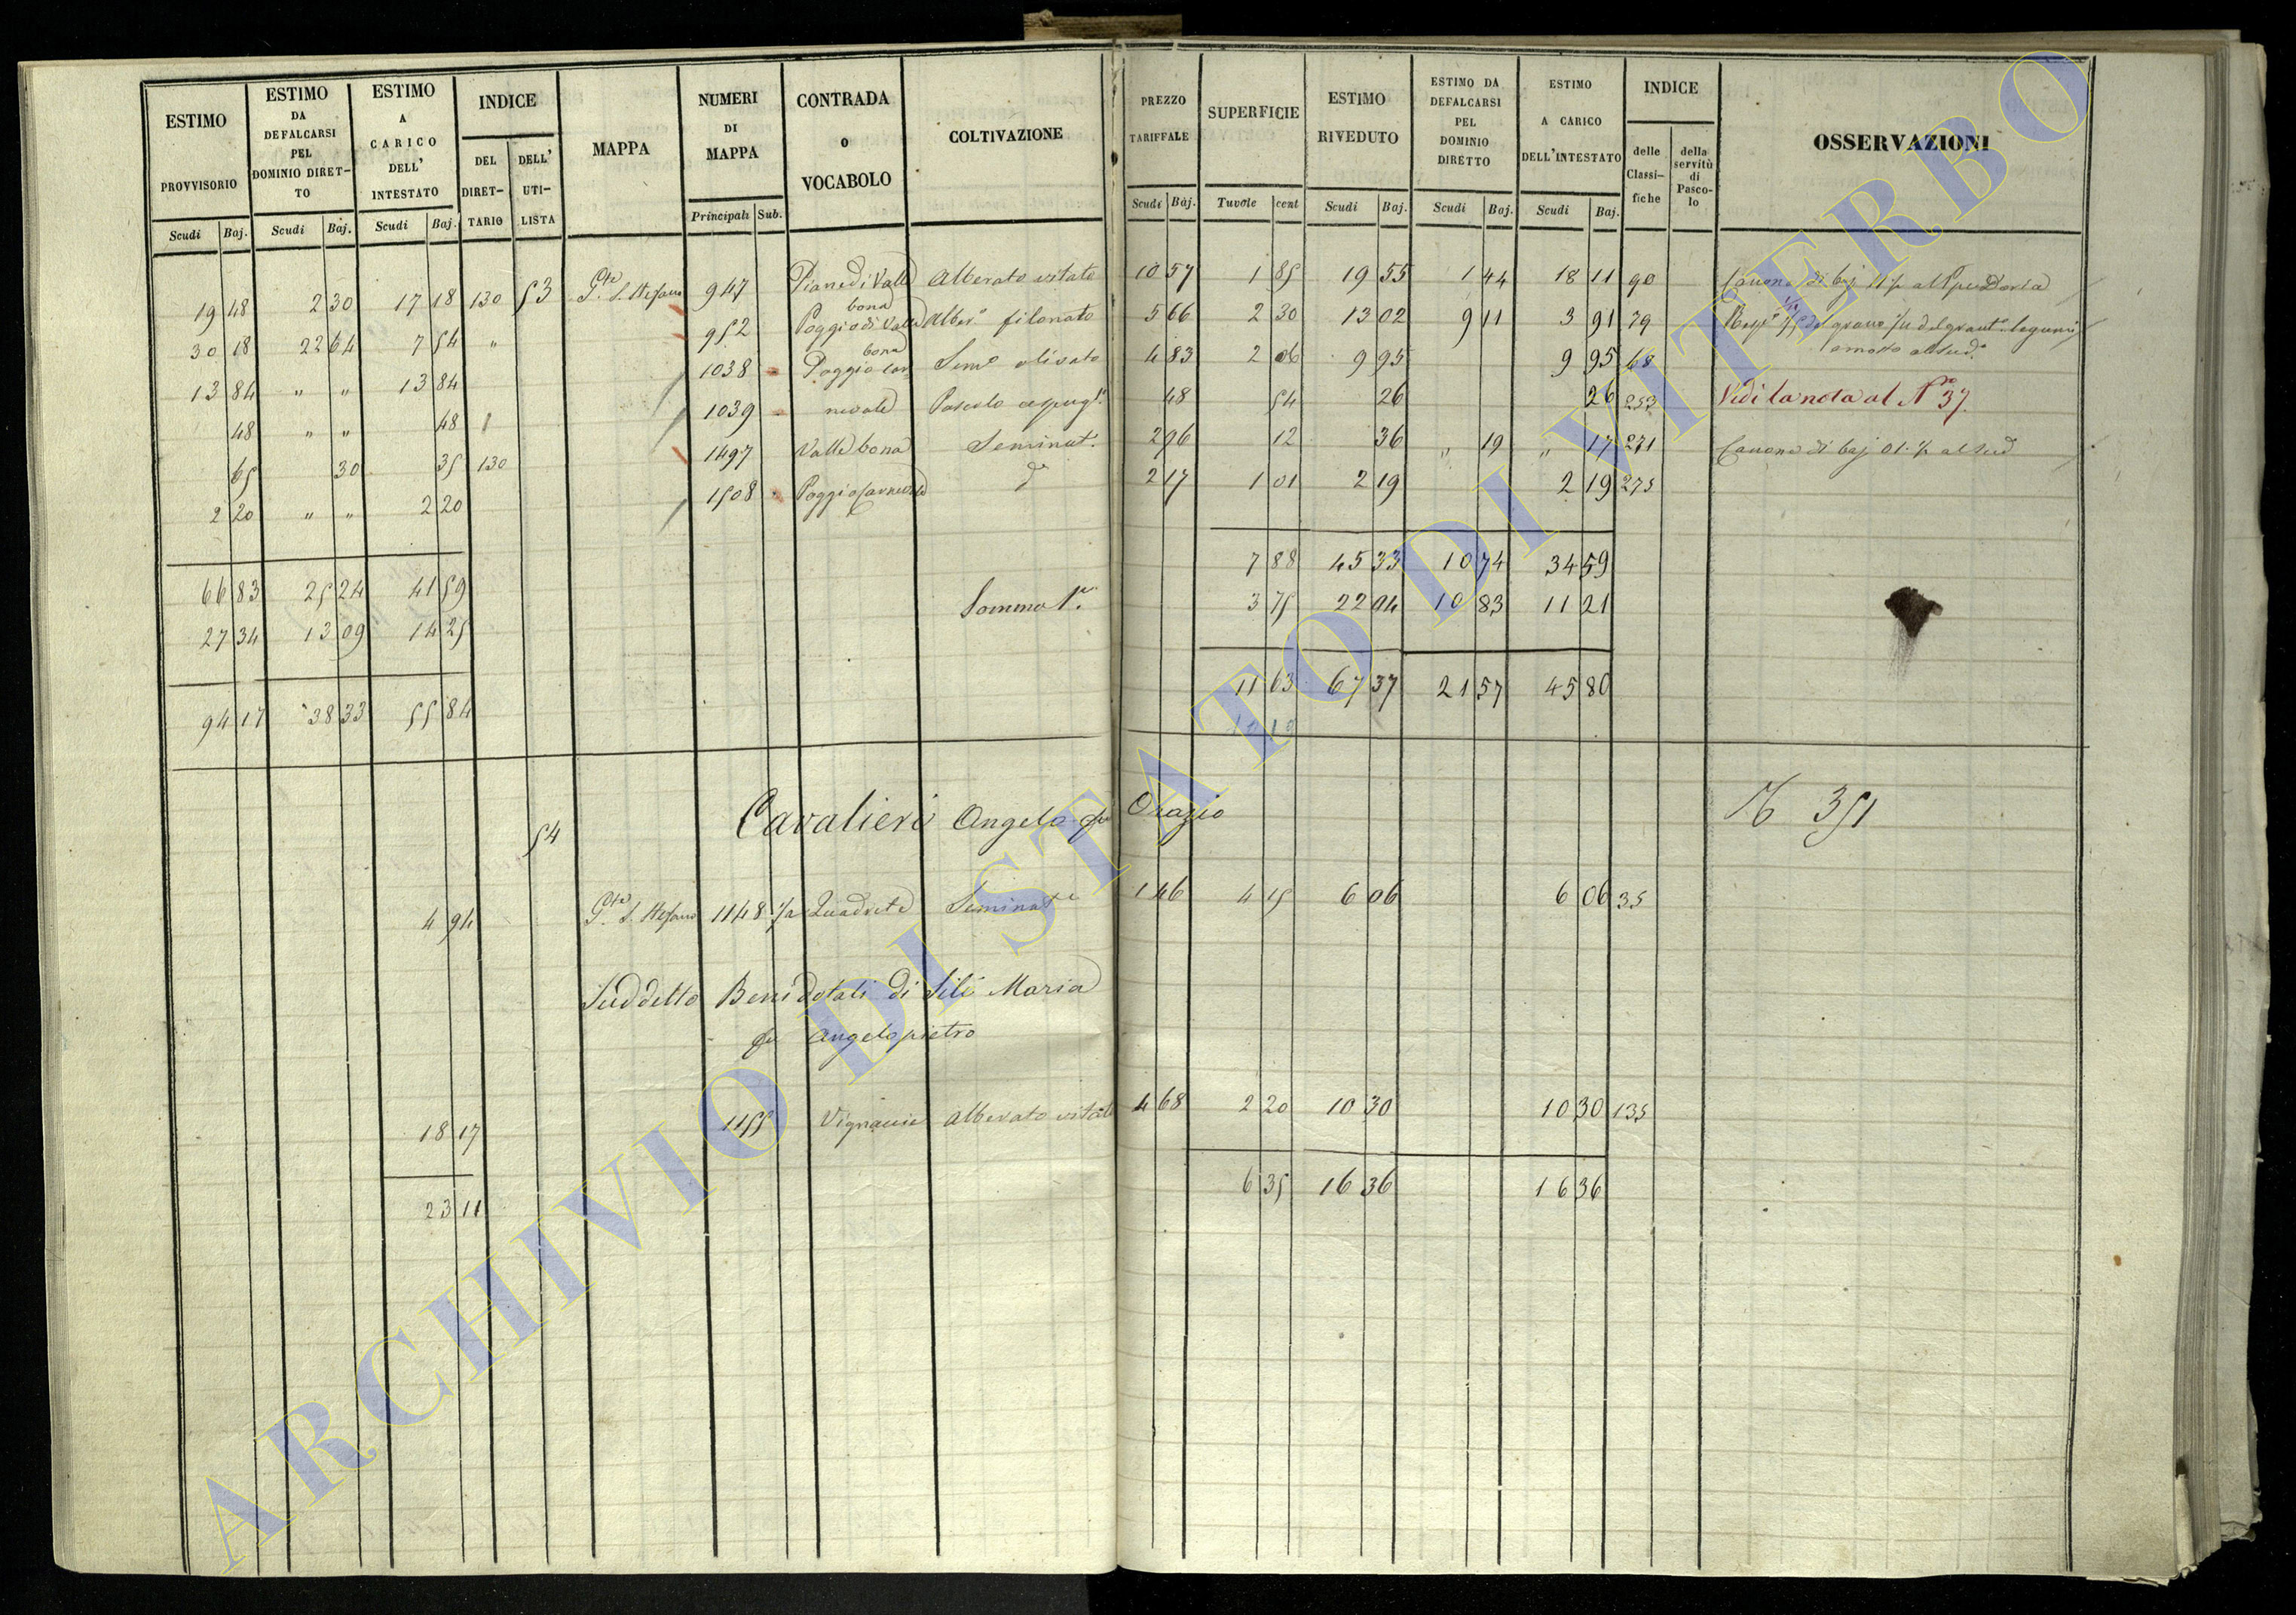 ESTIMO PROVVISORIO Scudi Baj.
ESTIMO DA DEFALCARSI PEL DOMINIO DIRETTO Scudi Baj.
ESTIMO A CARICO DELL' INTESTATO Scudi Baj.
INDICE DEL DIRETTARIO DELL' UTILISTA
MAPPA
NUMERI DI MAPPA Principali Sub.
CONTRADA o VOCABOLO
COLTIVAZIONE
PREZZO TARIFFALE Scudi Baj.
SUPERFICIE Tavole cent
ESTIMO RIVEDUTO Scudi Baj.
ESTIMO DA DEFALCARSI PEL DOMINIO DIRETTO Scudi Baj.
ESTIMO A CARICO DELL'INTESTATO Scudi Baj.
INDICE delle Classifiche della servitù di Pascolo
OSSERVAZIONI
19 48 2 30 17 18 130 53 Gte. S. Stefano 947 Piane di Valle bona Alberato vitato 10 57 1 85 19 55 1 44 18 11 90 Canone di baj
30 18 22 64 7 54 " 952 Poggio di Valle bona Alber° filonato 5 66 2 30 13 02 9 11 3 91 79
13 84 " " 13 84 1038 Poggio car Semo olivato 4 83 2 06 9 95 9 95 68
48 " " 48 1039 nevale Pascolo cespugl. 48 54 26 26 253 Vedi la nota al N° 37.
65 30 35 130 1497 Valle bona Seminat. 2 96 12 36 " 19 " 17 271 Canone di baj 01.
2 20 " " 2 20 1508 Poggio Carnevale d° 2 17 1 01 2 19 2 19 275
66 83 25 24 41 59 7 88 45 33 10 74 34 59
27 34 13 09 14 25 Somma 1a. 3 75 22 04 10 83 11 21
94 17 38 33 55 84 11 63 67 37 21 57 45 80
54 Cavalieri Angelo fu Orazio N 351
4 94 Gte. S. Stefano 1148 1/2 Quadrete Seminat° 1 46 4 15 6 06 6 06 35
Suddetto Beni dotali di Sili Maria
fu Angelopietro
18 17 1155 Vignaccie Alberato vitato 4 68 2 20 10 30 10 30 135
23 11 6 35 16 36 16 36
ARCHIVIO DI STATO DI VITERBO